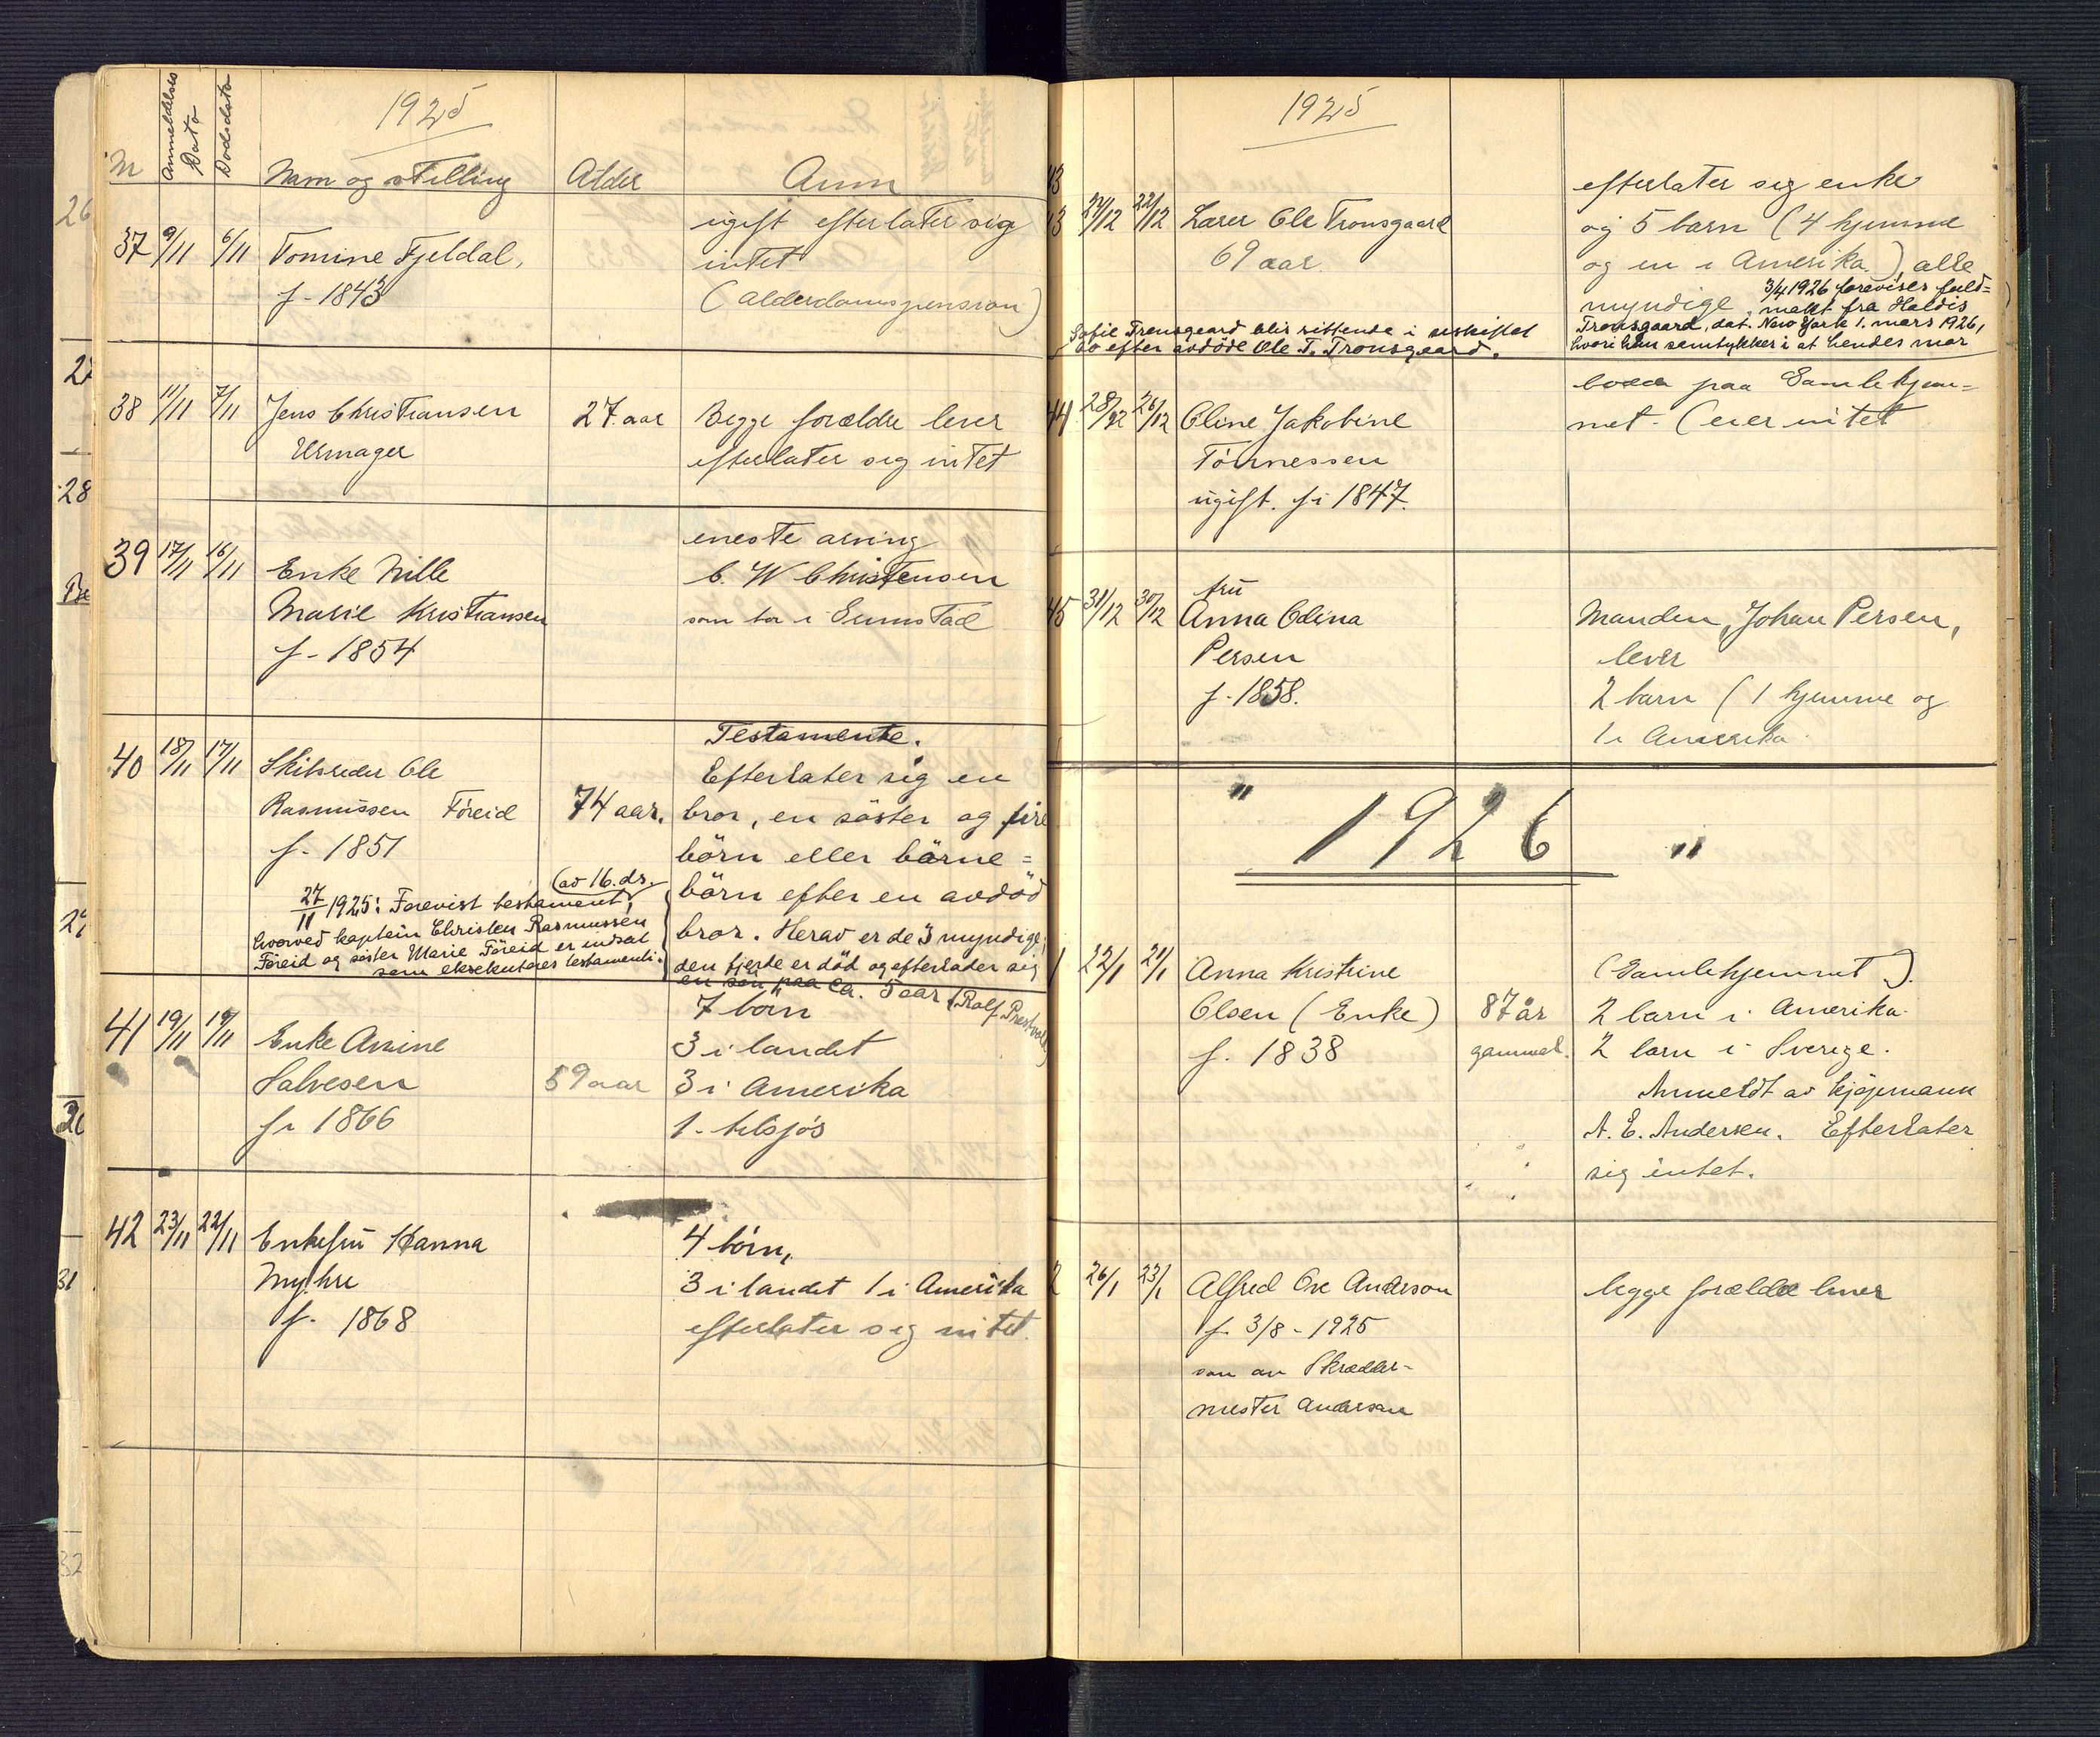 1925
Nr
Anmeldelses Dato
Dødsdato
Navn og stilling
Alder
Anm
37 9/11 6/11 Tomine Fjeldal,
f. 1843
ugift efterlater sig
intet
(Alderdomspension)
38 11/11 7/11 Jens Christiansen
Urmager
27 aar
Begge forældre lever
efterlater sig intet
39 17/11 16/11 Enke Nille
Marie Kristiansen
f. 1854
eneste arving
C. W Christensen
som bor i
40 18/11 17/11 Skibsreder Ole
Rasmussen Föreid
f. 1851
74 aar.
27/11 1925: Forevist testament, (av 16. ds.
hvorved kaptein Christen Rasmussen
Föreid og søster Marie Föreid er indsat
som eksekutores testamenti.
Testamente.
Efterlater sig en
bror, en söster og fire
börn eller börne=
börn efter en avdöd
bror. Herav er de 3 myndige,
den fjerde er död og efterlader sig
en sön paa ca. 5 aar (Rolf Prestvold)
41 19/11 19/11 Enke Amine
Salvesen
f. 1866
59 aar
7 börn
3 i landet
3 i Amerika
1. tilsjös
42 23/11 22/11 Enkefru Hanna
Myhre
f. 1868
4 börn,
3 i landet 1 i Amerika
efterlater sig intet.
1925
43
24/12 22/12 Lærer Ole Tronsgaard
69 aar.
efterlater sig enke
og 5 barn (4 hjemme
og en i Amerika.) alle
myndige. 3/4 1926 forevises fuld=
makt fra Haldis
Tronsgaard, dat. New York 1. mars 1926,
hvori hun samtykker i at hendes mor
Sofie Tronsgaard blir sittende i uskiftet
bo efter avdöde Ole T. Tronsgaard.
44 28/12 26/12 Oline Jakobine
Tönnessen
ugift. f. 1847.
boede paa Gamlehjem-
met. (eier intet
45 31/12 30/12 fru
Anna Odina
Persen
f. 1858.
Manden, Johan Persen,
lever
2 barn (1 hjemme og
1 i Amerika
" 1926 "
1 22/1 21/1 Anna Kristine
Olsen (Enke)
f. 1838
87 år
gammel.
(Gamlehjemmet).
2 barn i Amerika.
2 barn i Sverige.
Anmeldt av kjøpmann
A. E. Andersen. Efterlater
sig intet.
2 26/1 23/1 Alfred Ove Anderson
f. 3/8-1925
søn av Skrædder-
mester Anderson
begge forældre lever